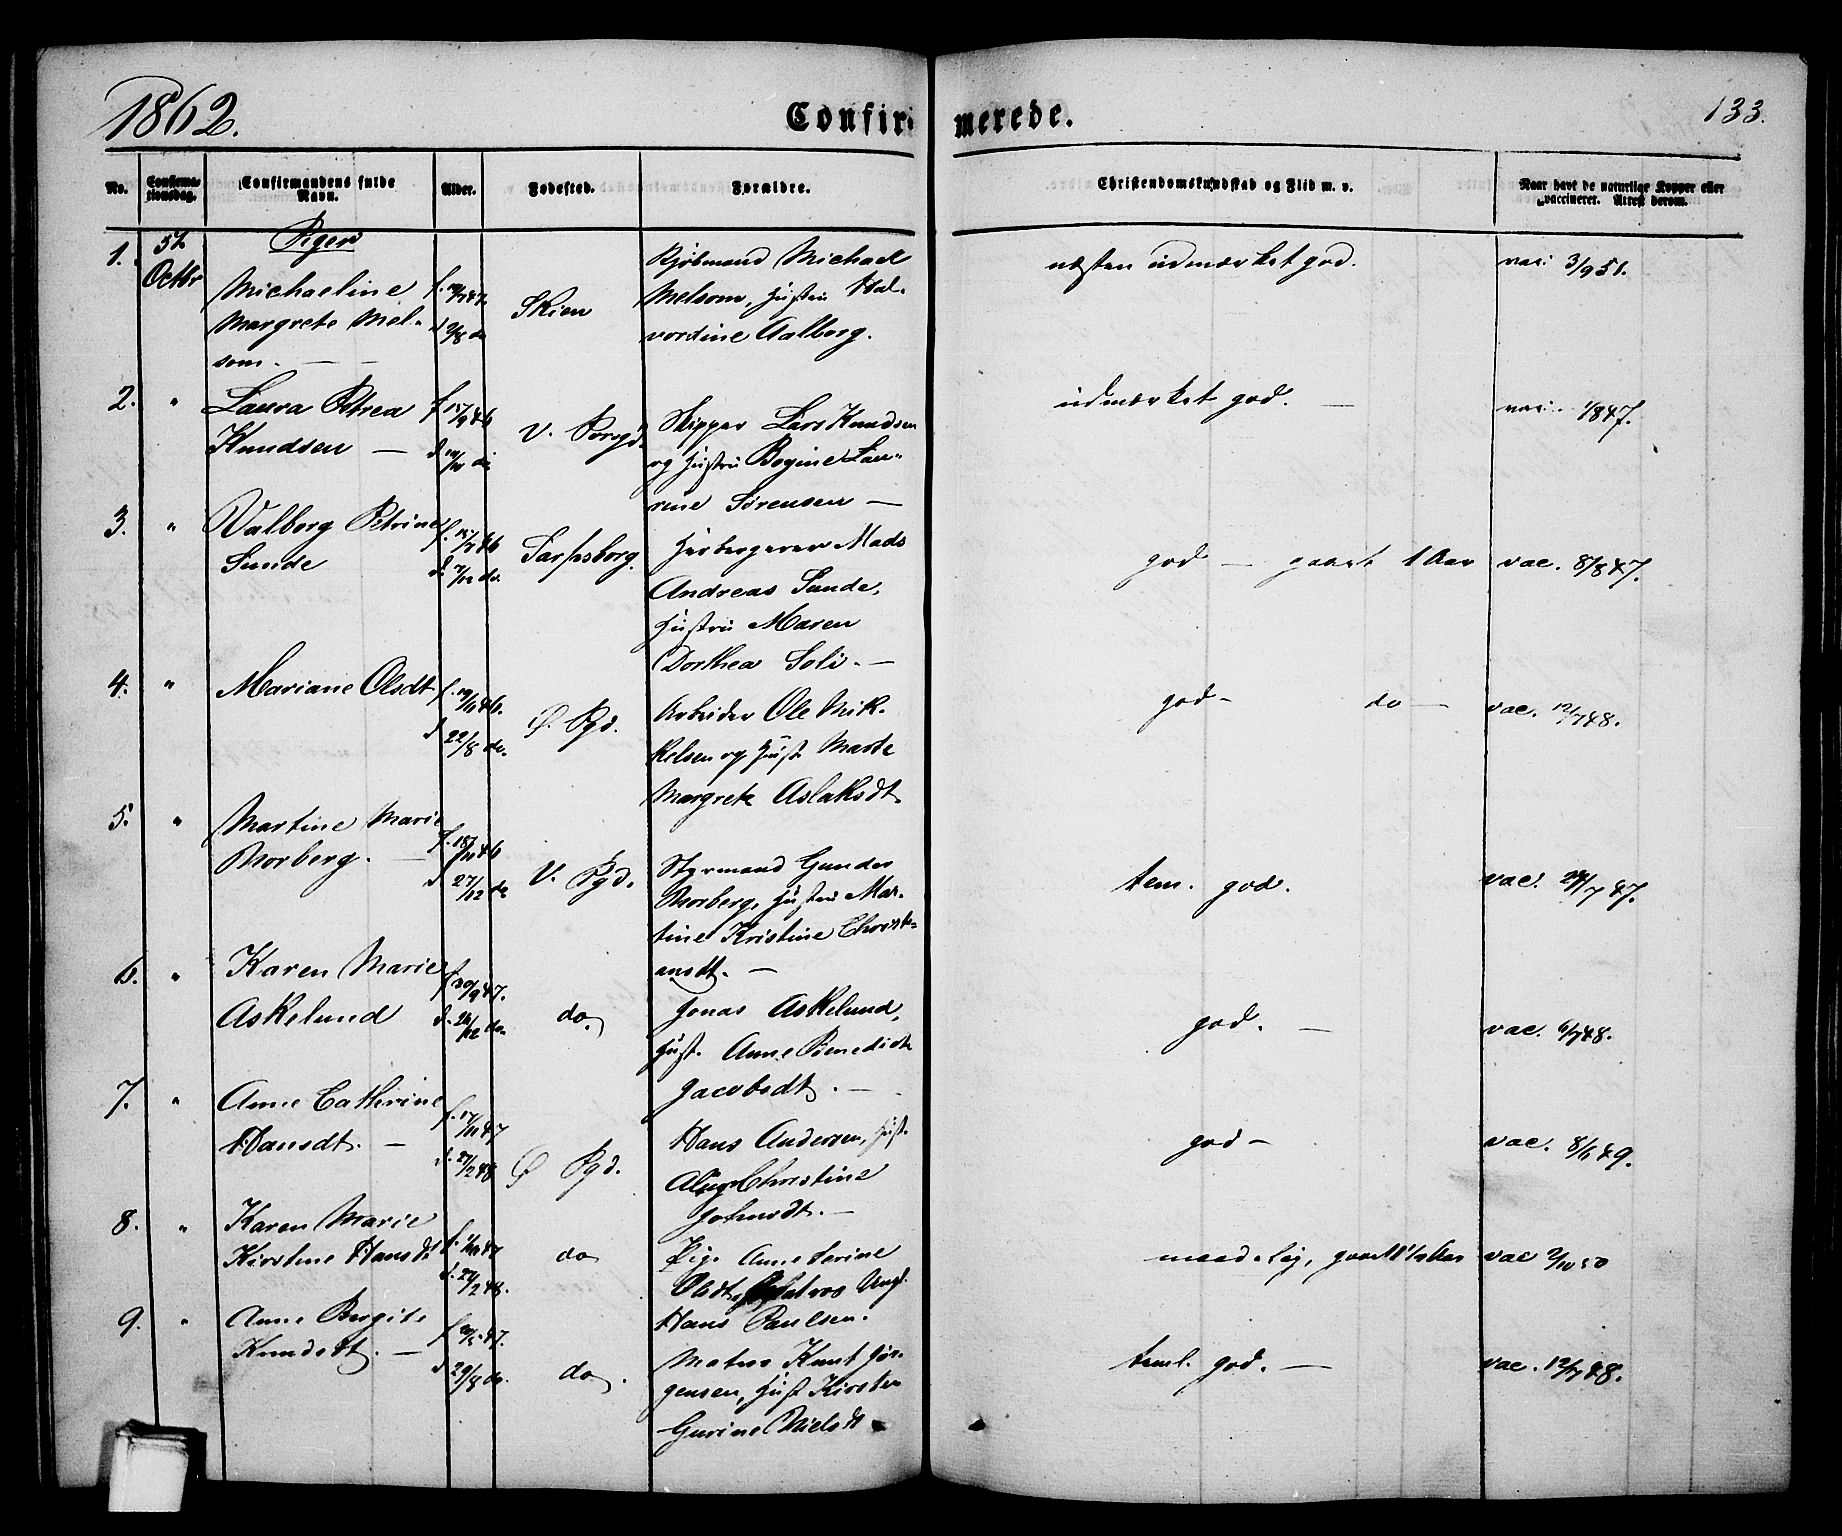 1862.
Confirmerede.
133.
No.
Confirmationsdag.
Confirmandens fulde Navn.
Alder.
Fødested.
Forældre.
Christendomskundskab og Flid m. v.
Naar havt de naturlige Kopper eller vaccineret. Attest derom.
Piger
1. Octbr
Michaeline f.
Margrete Mel-
som. —
Skien
Kjøbmand Michael
Melsom, Hustru Hal-
vordine Aalborg.
næsten udmærket god.
vac: 3/9 51.
2. " Laura Petrea
Knudsen —
V. Porsgd.
Skipper Lars Knudsen
og Hustru Bogine Lau-
rine Sørensen —
udmærket god. —
vac: 1/8 47.
3. " Valborg Petrine
Sunde
Sarpsborg.
Herbergerer Mads
Andreas Sunde,
Hustru Maren
Dorthea Soli. —
god — gaaet 1 Aar
vac. 8/8 47.
4. " Mariane Olsdt
d. 22/8 do.
Ø. Pgd.
Arbeider Ole Mik-
kelsen og Hust. Marte
Margrete Aslaksdt.
god — do —
vac. 12/7 48.
5. " Martine Marie
Morberg. —
d. 27/12 do
V. Pgd.
Styrmand Gunder
Morberg, Hustru Mar-
tine Kristine Christi-
ansdt. —
tem. god.
vac. 24/7 47.
6. " Karen Marie f. 30/9 47.
Askelund d. 26/12 do.
do.
Jonas Askelund,
Hust. Anne Benedicte
Jacobsdt. —
god. —
vac. 6/7 48.
7. " Anne Cathrine f. 17/11 47
Hansdt. — d. 27/2 48
Ø Pgd.
Hans Andersen, Hust.
Christine
god —
vac. 8/6 49.
8. " Karen Marie
Kirstine Hansdt
d. 27/2 48.
do
Pige Anne Serine
Olsdt, Matros Ungk.
Hans Paulsen.
maadelig, gaaet
vac 2/10 50
9. " Anne Birgite
Knudsdt. —
d. 29/8 do.
do.
Matros Knut Jør-
gensen, Hust Kirsten
Gurine Nielsdt
teml. god. —
vac. 12/7 48.